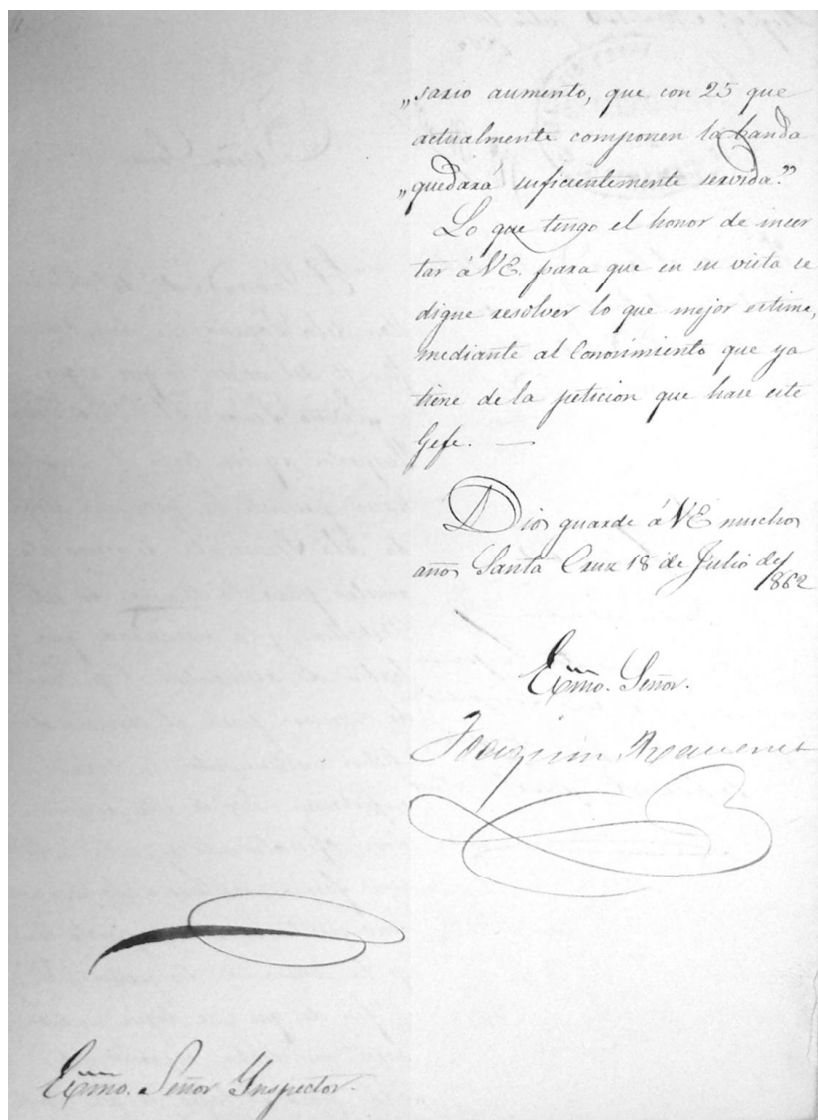 „sario aumento, que con 25 que
actualmente componen la banda
„quedará suficientemente servida."
Lo que tengo el honor de inser
tar á VE. para que en su vista se
digne resolver lo que mejor estime,
mediante al Conocimiento que ya
tiene de la peticion que hase este
Gefe. —
Dios guarde á VE muchos
años Santa Cruz 18 de Julio de
1862
Exmo. Señor.
Joaquin
Exmo. Señor Ynspector.